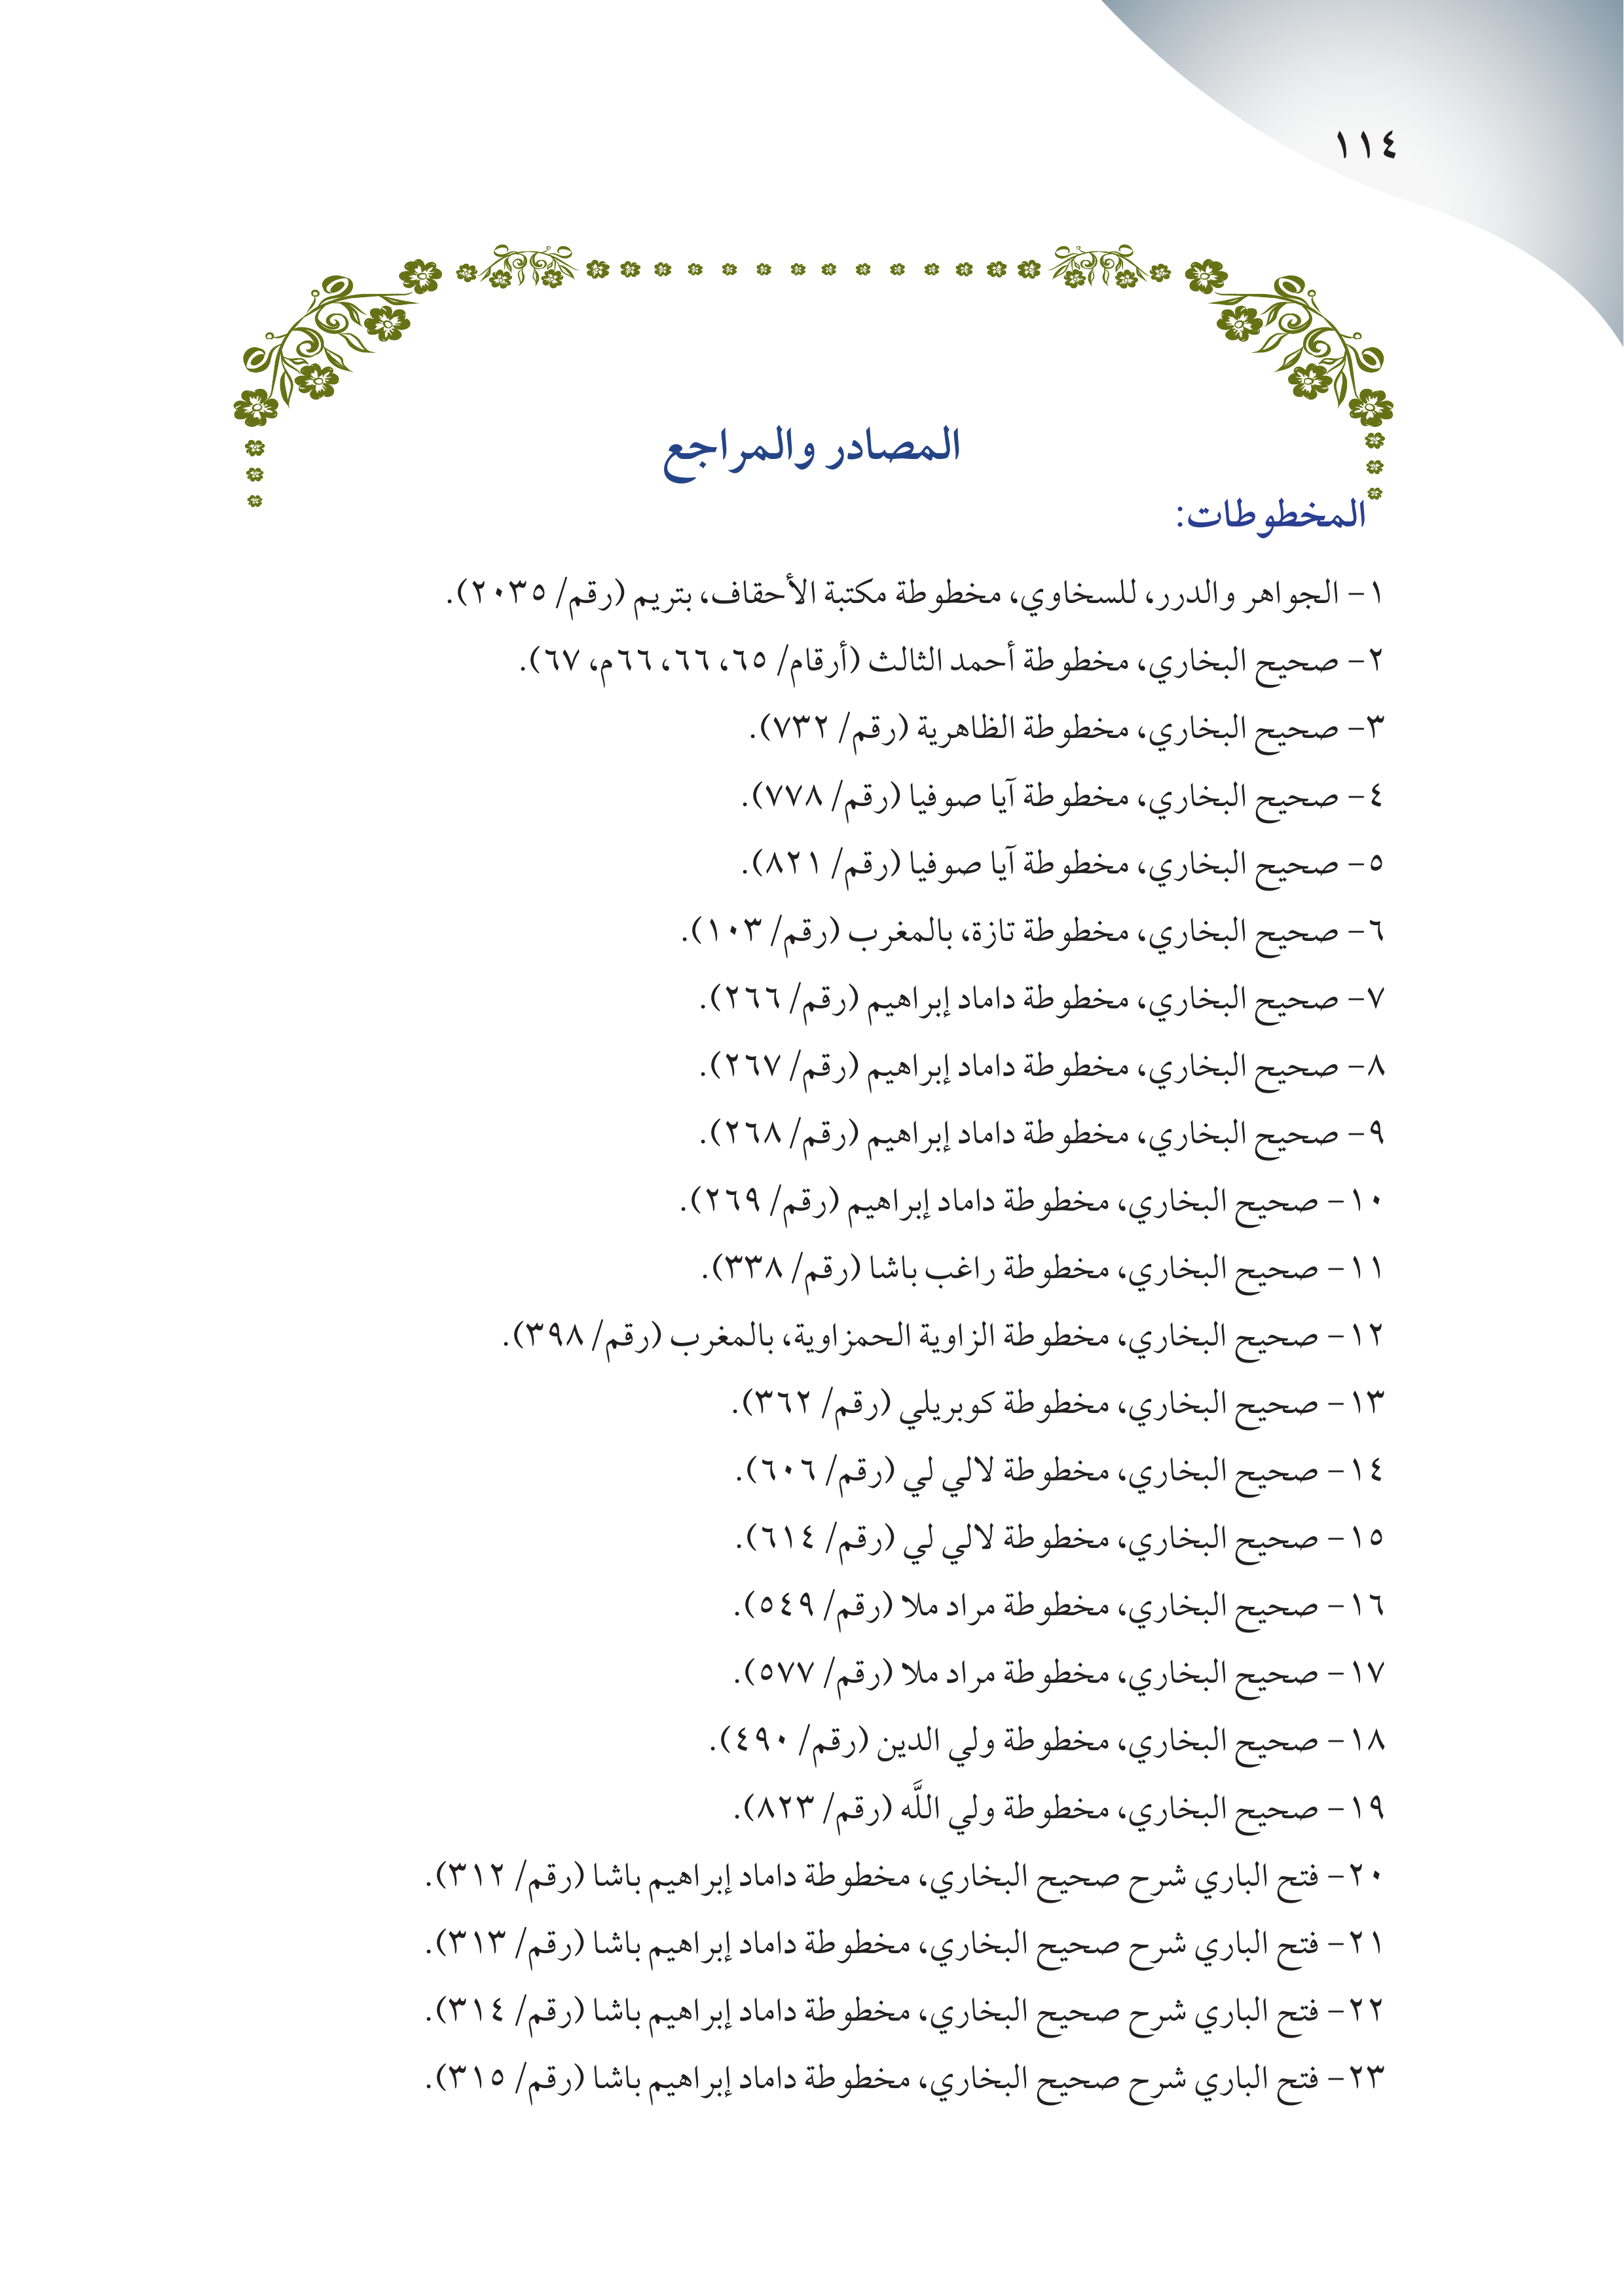 ١١٤
المصادر والمراجع
المخطوطات:
١- الجواهر والدرر، للسخاوي، مخطوطة مكتبة الأحقاف، بتريم (رقم/ ٢٠٣٥).
٢- صحيح البخاري، مخطوطة أحمد الثالث (أرقام/ ٦٥، ٦٦، ٦٦م، ٦٧).
٣- صحيح البخاري، مخطوطة الظاهرية (رقم/ ٧٣٢).
٤- صحيح البخاري، مخطوطة آيا صوفيا (رقم/ ٧٧٨).
٥- صحيح البخاري، مخطوطة آيا صوفيا (رقم/ ٨٢١).
٦- صحيح البخاري، مخطوطة تازة، بالمغرب (رقم/ ١٠٣).
٧- صحيح البخاري، مخطوطة داماد إبراهيم (رقم/ ٢٦٦).
٨- صحيح البخاري، مخطوطة داماد إبراهيم (رقم/ ٢٦٧).
٩- صحيح البخاري، مخطوطة داماد إبراهيم (رقم/ ٢٦٨).
١٠- صحيح البخاري، مخطوطة داماد إبراهيم (رقم/ ٢٦٩).
١١- صحيح البخاري، مخطوطة راغب باشا (رقم/ ٣٣٨).
١٢- صحيح البخاري، مخطوطة الزاوية الحمزاوية، بالمغرب (رقم/ ٣٩٨).
١٣- صحيح البخاري، مخطوطة كوبريلي (رقم/ ٣٦٢).
١٤- صحيح البخاري، مخطوطة لالي لي (رقم/ ٦٠٦).
١٥- صحيح البخاري، مخطوطة لالي لي (رقم/ ٦١٤).
١٦- صحيح البخاري، مخطوطة مراد ملا (رقم/ ٥٤٩).
١٧- صحيح البخاري، مخطوطة مراد ملا (رقم/ ٥٧٧).
١٨- صحيح البخاري، مخطوطة ولي الدين (رقم/ ٤٩٠).
١٩- صحيح البخاري، مخطوطة ولي اللَّه (رقم/ ٨٢٣).
٢٠- فتح الباري شرح صحيح البخاري، مخطوطة داماد إبراهيم باشا (رقم/ ٣١٢).
٢١- فتح الباري شرح صحيح البخاري، مخطوطة داماد إبراهيم باشا (رقم/ ٣١٣).
٢٢- فتح الباري شرح صحيح البخاري، مخطوطة داماد إبراهيم باشا (رقم/ ٣١٤).
٢٣- فتح الباري شرح صحيح البخاري، مخطوطة داماد إبراهيم باشا (رقم/ ٣١٥).